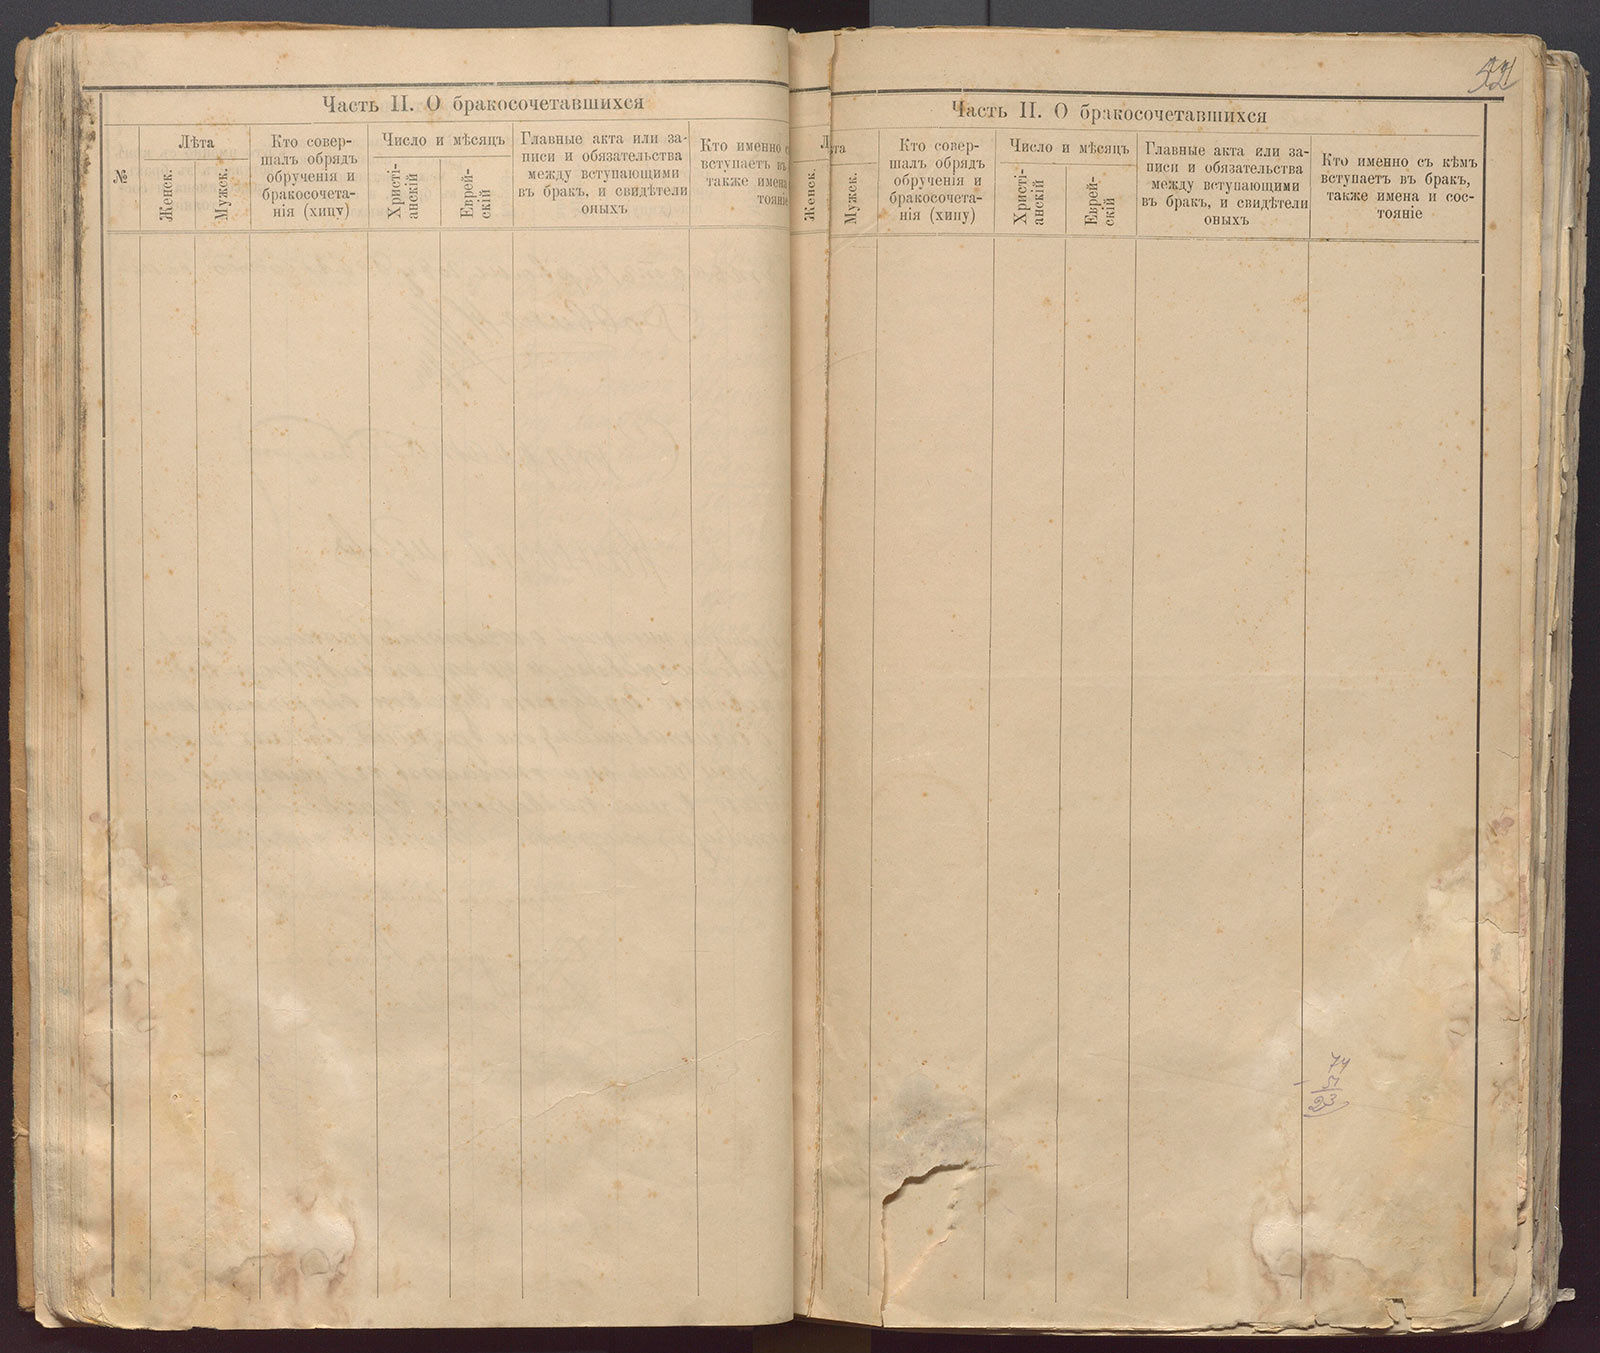 Часть II. О бракосочетавшихся
№
Лѣта
Женск.
Мужск.
Кто совер-
шалъ обрядъ
обрученія и
бракосочета-
нія (хипу)
Число и мѣсяцъ
Христі-
анскій
Еврей-
скій
Главные акта или за-
писи и обязательства
между вступающими
въ бракъ, и свидѣтели
оныхъ
Кто именно с
вступаетъ въ
также имена
тояніе
Часть II. О бракосочетавшихся
Лѣта
Женск.
Мужск.
Кто совер-
шалъ обрядъ
обрученія и
бракосочета-
нія (хипу)
Число и мѣсяцъ
Христі-
анскій
Еврей-
скій
Главные акта или за-
писи и обязательства
между вступающими
въ бракъ, и свидѣтели
оныхъ
Кто именно съ кѣмъ
вступаетъ въ бракъ,
также имена и сос-
тояніе
74
- 51
23